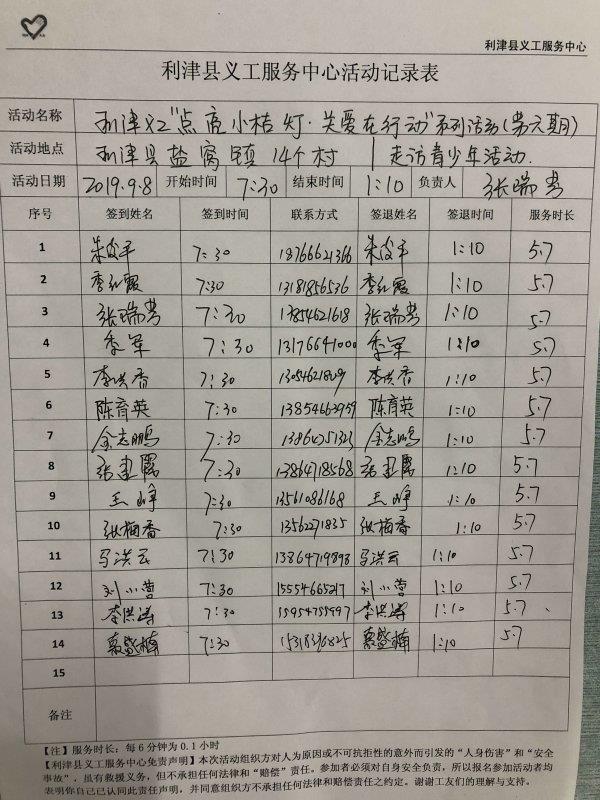 利津县义工服务中心
利津县义工服务中心活动记录表
活动名称 利津义工"点亮小桔灯·关爱在行动"系列活动(第六期)
活动地点 利津县盐窝镇 14个村 走访青少年活动.
活动日期 2019.9.8 开始时间 7:30 结束时间 1:10 负责人 张瑞芳
序号 签到姓名 签到时间 联系方式 签退姓名 签退时间 服务时长
1 7:30 18766621366 1:10 5.7
2 李红霞 7:30 13181856536 李红霞 1:10 5.7
3 张瑞芳 7:30 13854621618 张瑞芳 1:10 5.7
4 季军 7:30 13176641000 季军 1:10 5.7
5 李洪香 7:30 李洪香 1:10 5.7
6 陈育英 7:30 13854662959 陈育英 1:10 5.7
7 金志鹏 7:30 金志鹏 1:10 5.7
8 7:30 13864718568 1:10 5.7
9 王峥 7:30 13561086168 王峥 1:10 5.7
10 张梅香 7:30 13562271835 张梅香 1:10 5.7
11 马洪云 7:30 13864719898 马洪云 1:10 5.7
12 刘小营 7:30 15554665217 刘小营 1:10 5.7
13 李洪涛 7:30 李洪涛 1:10 5.7
14 7:30 1:10 5.7
15
备注
【注】服务时长：每6分钟为0.1小时
【利津县义工服务中心免责声明】本次活动组织方对人为原因或不可抗拒性的意外而引发的"人身伤害"和"安全
事故"，虽有救援义务，但不承担任何法律和"赔偿"责任。参加者必须对自身安全负责，所以报名参加活动者均
表明你自己已认同此责任声明，并同意组织方不承担任何法律和赔偿责任之约定。谢谢工友们的理解与支持。